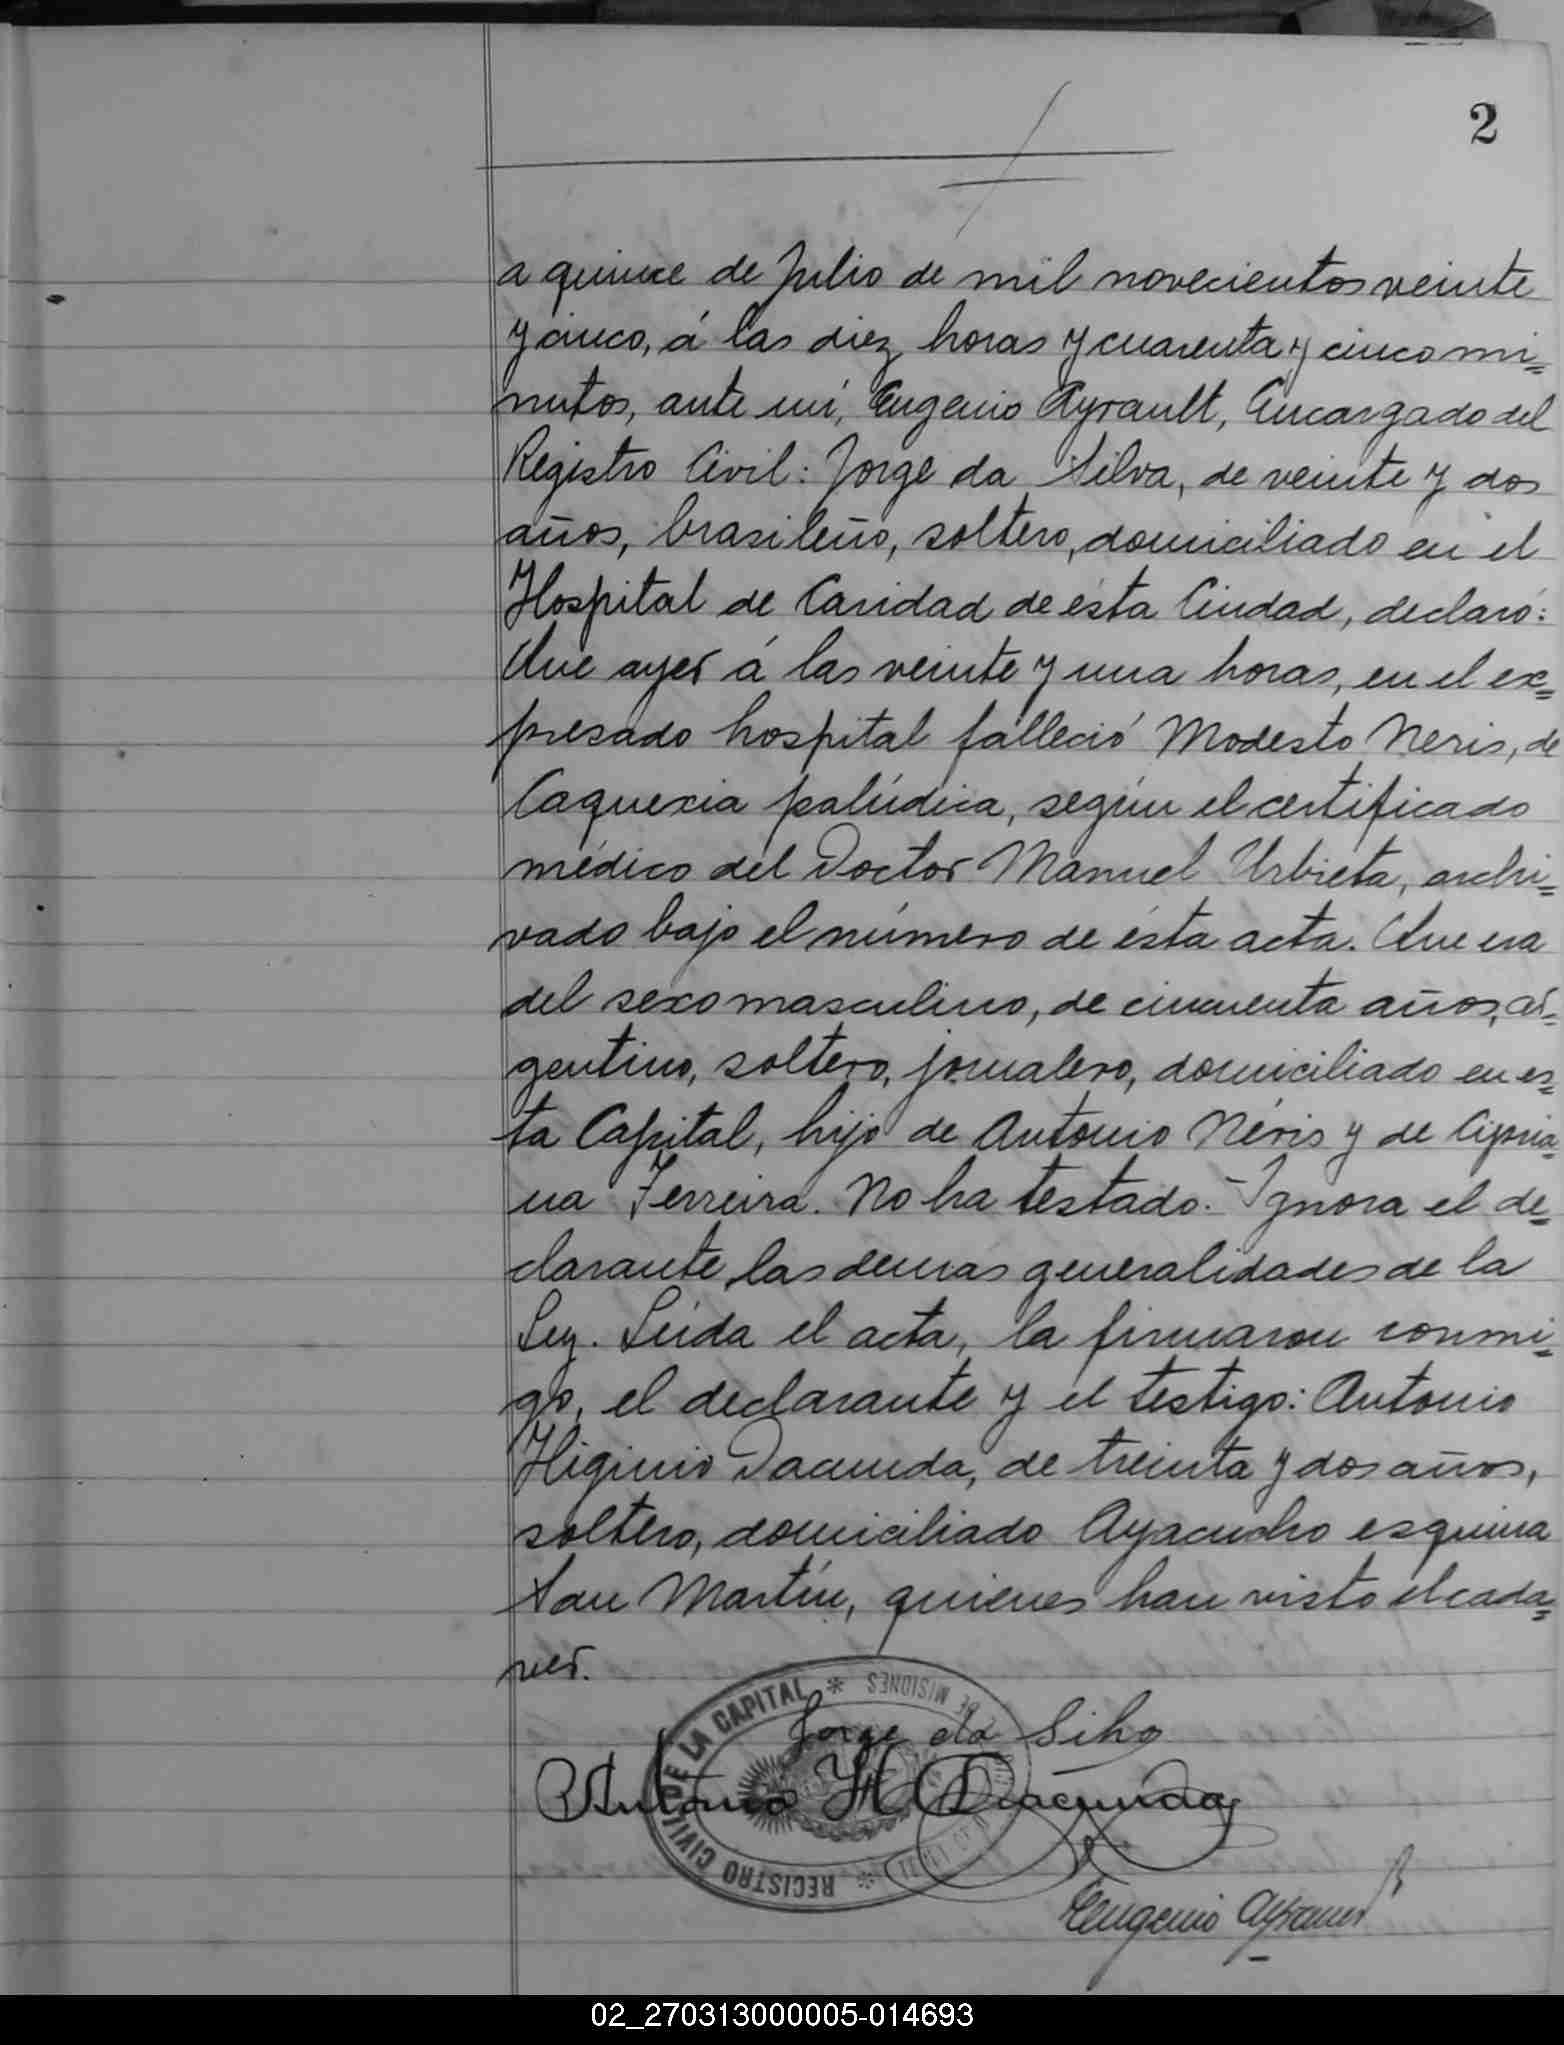 2
a quince de Julio de mil novecientos veinte
y cinco, á las diez horas y cuarenta y cinco mi=
nutos, ante mí, Eugenio Ayrault, Encargado del
Registro Civil: Jorge da Silva, de veinte y dos
años, brasileño, soltero, domiciliado en el
Hospital de Caridad de ésta Ciudad, declaró:
Que ayer á las veinte y una horas, en el ex=
presado hospital falleció Modesto Neris, de
Caquexia palúdica, según el certificado
médico del Doctor Manuel Urbieta, archi=
vado bajo el número de ésta acta. Que era
del sexo masculino, de cincuenta años, ar=
gentino, soltero, jornalero, domiciliado en es=
ta Capital, hijo de Antonio Néris y de Cipria=
na Ferreira. No ha testado.- Ignora el de=
clarante, las demás generalidades de la
Ley. Leída el acta, la firmaron conmi=
go, el declarante y el testigo: Antonio
Higinio Dacunda, de treinta y dos años,
soltero, domiciliado Ayacucho esquina
San Martín, quienes han visto el cada=
ver.
REGISTRO CIVIL DE LA CAPITAL * DE MISIONES *
Jorge da Silva
Antonio H Dacunda
Eugenio Ayrault
02_270313000005-014693